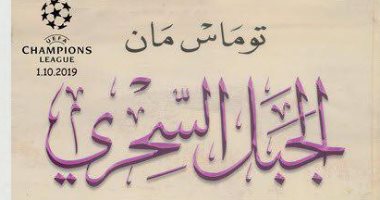 UEFA
CHAMPIONS
LEAGUE
1.10.2019
توماس مان
الجبل السّحري